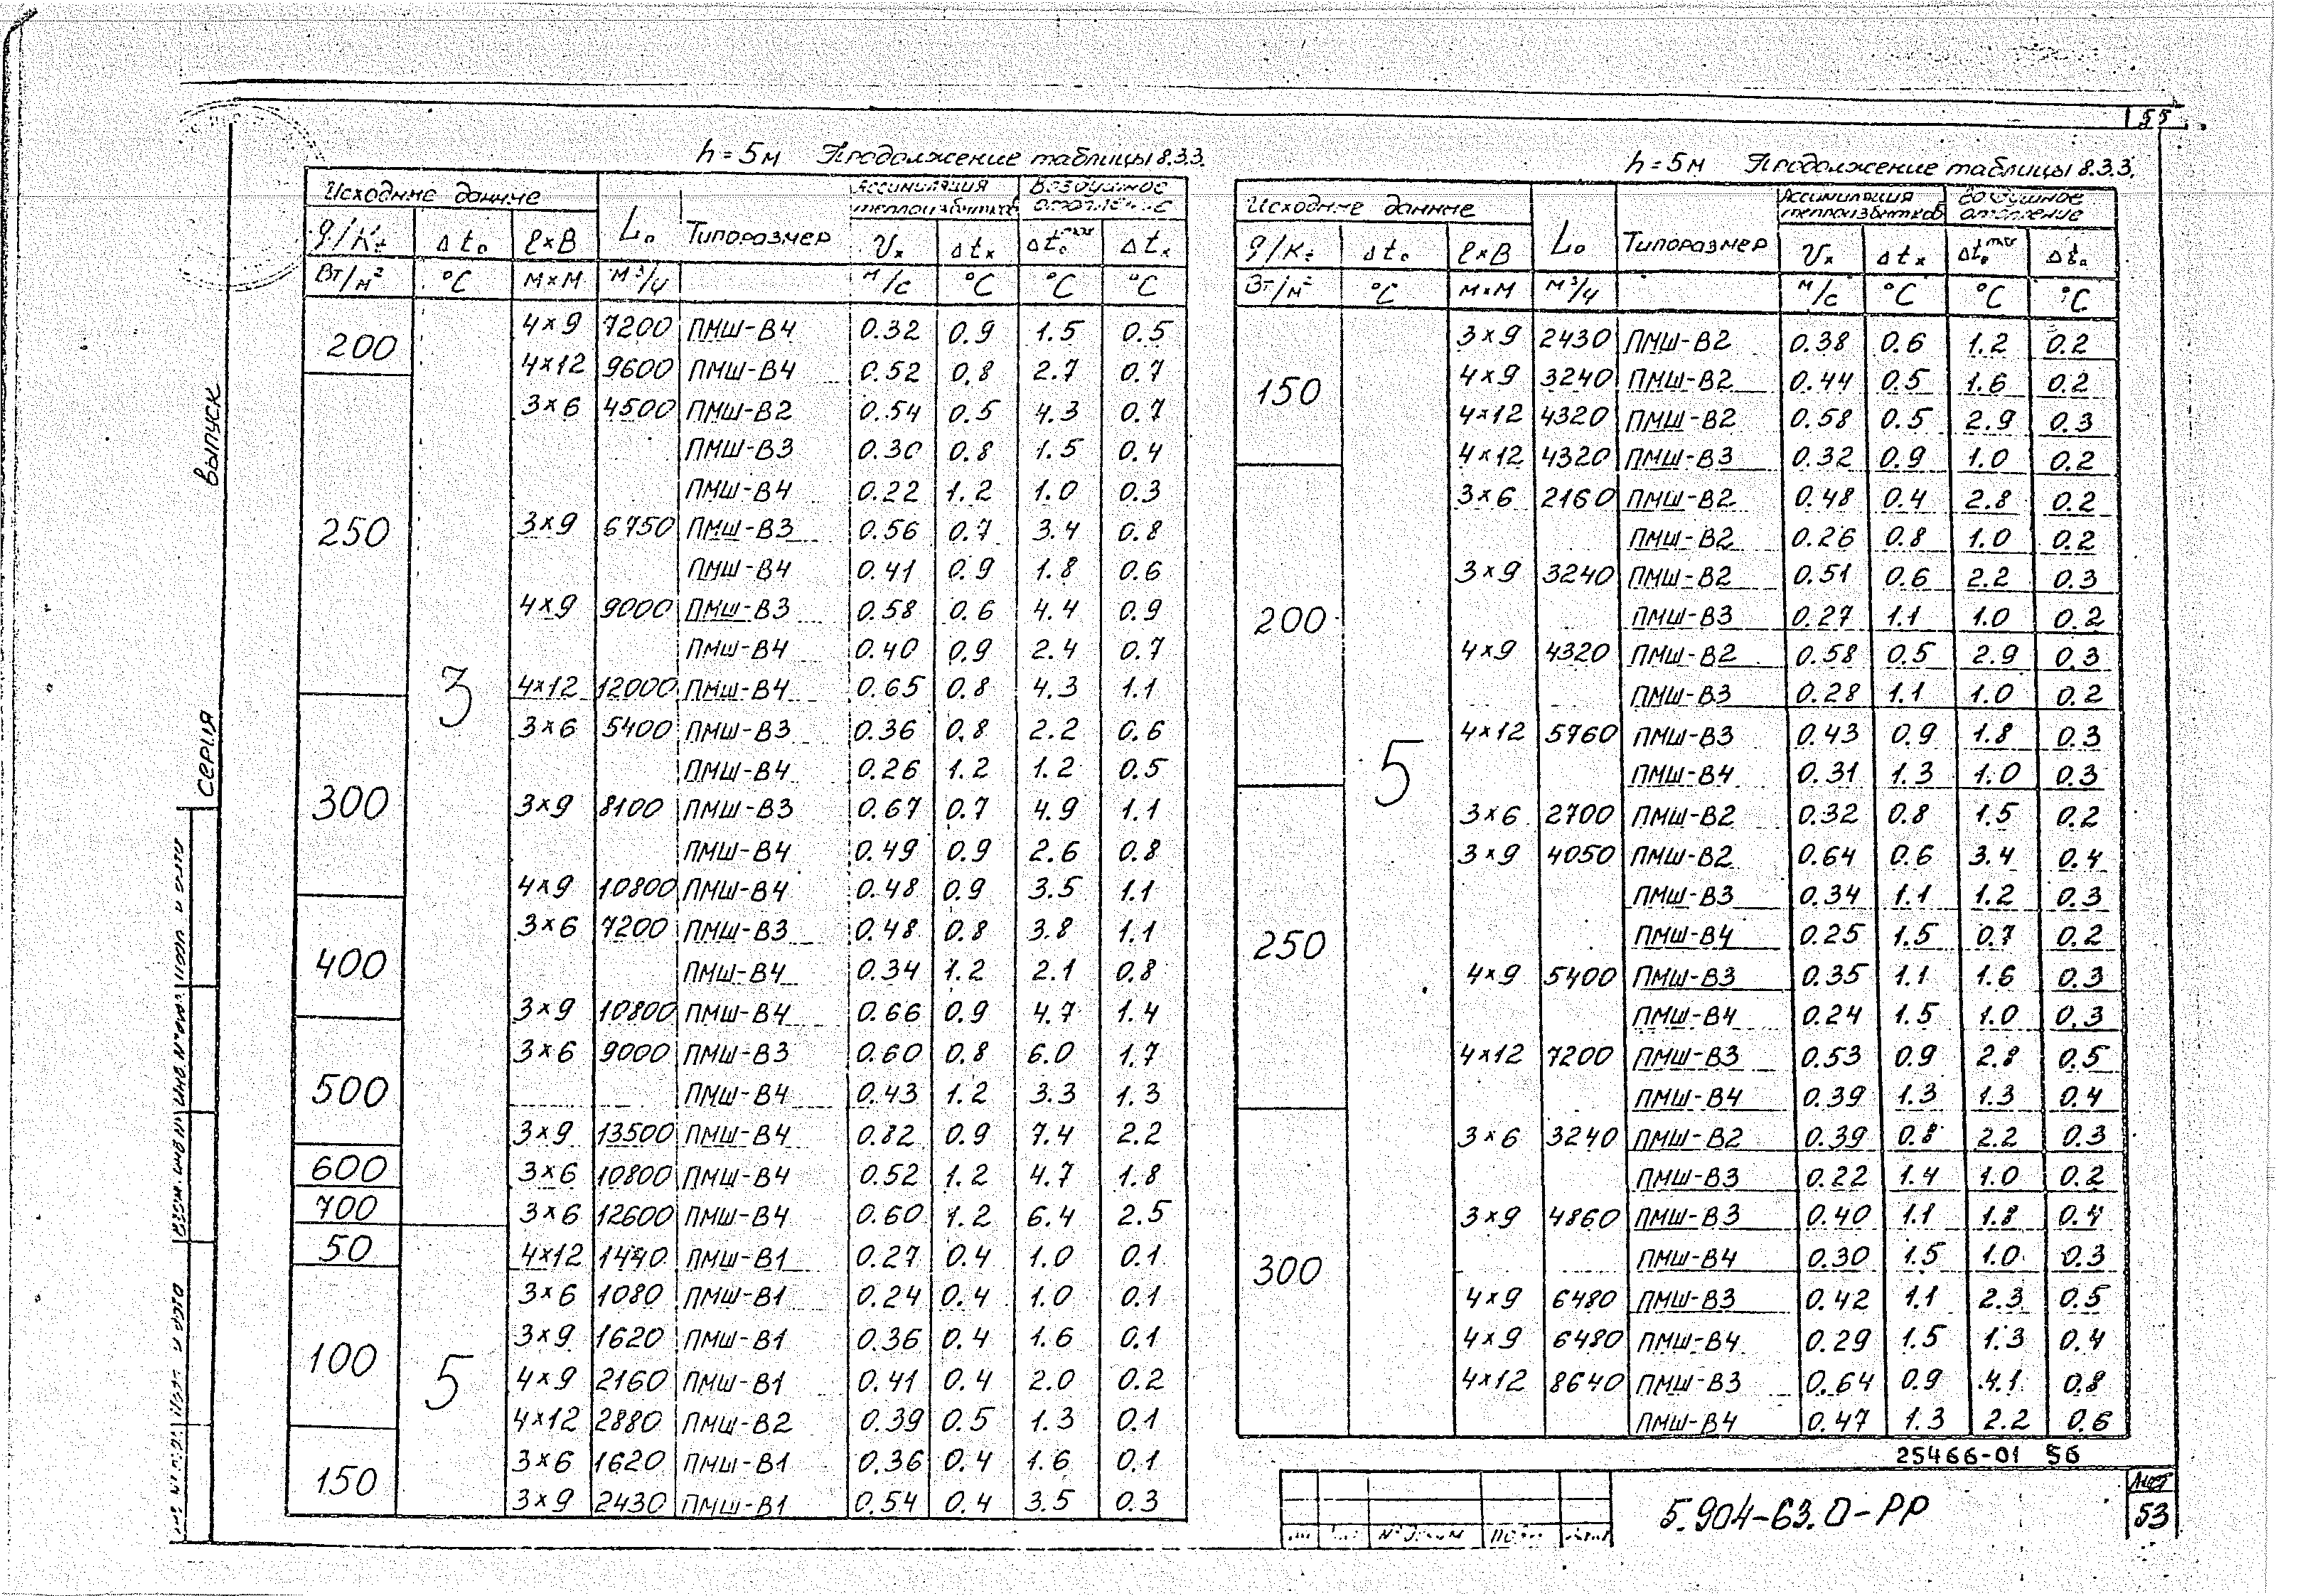 55
h = 5м Продолжение таблицы 8.3.3.
Исходные данные L₀ Типоразмер Ассимиляция теплоизбытков Воздушное отопление
q/Kt Δt₀ ℓ×B Vx Δtx Δt₀max Δtx
Вт/м² °C м×м м³/ч м/с °C °C °C
200 3 4×9 7200 ПМШ-В4 0.32 0.9 1.5 0.5
4×12 9600 ПМШ-В4 0.52 0.8 2.7 0.7
250 3×6 4500 ПМШ-В2 0.54 0.5 4.3 0.7
ПМШ-В3 0.30 0.8 1.5 0.4
ПМШ-В4 0.22 1.2 1.0 0.3
3×9 6750 ПМШ-В3 0.56 0.7 3.4 0.8
ПМШ-В4 0.41 0.9 1.8 0.6
4×9 9000 ПМШ-В3 0.58 0.6 4.4 0.9
ПМШ-В4 0.40 0.9 2.4 0.7
4×12 12000 ПМШ-В4 0.65 0.8 4.3 1.1
300 3×6 5400 ПМШ-В3 0.36 0.8 2.2 0.6
ПМШ-В4 0.26 1.2 1.2 0.5
3×9 8100 ПМШ-В3 0.67 0.7 4.9 1.1
ПМШ-В4 0.49 0.9 2.6 0.8
4×9 10800 ПМШ-В4 0.48 0.9 3.5 1.1
400 3×6 7200 ПМШ-В3 0.48 0.8 3.8 1.1
ПМШ-В4 0.34 1.2 2.1 0.8
3×9 10800 ПМШ-В4 0.66 0.9 4.7 1.4
500 3×6 9000 ПМШ-В3 0.60 0.8 6.0 1.7
ПМШ-В4 0.43 1.2 3.3 1.3
3×9 13500 ПМШ-В4 0.82 0.9 7.4 2.2
600 3×6 10800 ПМШ-В4 0.52 1.2 4.7 1.8
700 3×6 12600 ПМШ-В4 0.60 1.2 6.4 2.5
50 5 4×12 1440 ПМШ-В1 0.27 0.4 1.0 0.1
100 3×6 1080 ПМШ-В1 0.24 0.4 1.0 0.1
3×9 1620 ПМШ-В1 0.36 0.4 1.6 0.1
4×9 2160 ПМШ-В1 0.41 0.4 2.0 0.2
4×12 2880 ПМШ-В2 0.39 0.5 1.3 0.1
150 3×6 1620 ПМШ-В1 0.36 0.4 1.6 0.1
3×9 2430 ПМШ-В1 0.54 0.4 3.5 0.3
h = 5м Продолжение таблицы 8.3.3.
Исходные данные L₀ Типоразмер Ассимиляция теплоизбытков Воздушное отопление
q/Kt Δt₀ ℓ×B Vx Δtx Δt₀max Δt₀
Вт/м² °C м×м м³/ч м/с °C °C °C
150 5 3×9 2430 ПМШ-В2 0.38 0.6 1.2 0.2
4×9 3240 ПМШ-В2 0.44 0.5 1.6 0.2
4×12 4320 ПМШ-В2 0.58 0.5 2.9 0.3
4×12 4320 ПМШ-В3 0.32 0.9 1.0 0.2
200 3×6 2160 ПМШ-В2 0.48 0.4 2.8 0.2
ПМШ-В2 0.26 0.8 1.0 0.2
3×9 3240 ПМШ-В2 0.51 0.6 2.2 0.3
ПМШ-В3 0.27 1.1 1.0 0.2
4×9 4320 ПМШ-В2 0.58 0.5 2.9 0.3
ПМШ-В3 0.28 1.1 1.0 0.2
4×12 5760 ПМШ-В3 0.43 0.9 1.8 0.3
ПМШ-В4 0.31 1.3 1.0 0.3
250 3×6 2700 ПМШ-В2 0.32 0.8 1.5 0.2
3×9 4050 ПМШ-В2 0.64 0.6 3.4 0.4
ПМШ-В3 0.34 1.1 1.2 0.3
ПМШ-В4 0.25 1.5 0.7 0.2
4×9 5400 ПМШ-В3 0.35 1.1 1.6 0.3
ПМШ-В4 0.24 1.5 1.0 0.3
4×12 7200 ПМШ-В3 0.53 0.9 2.8 0.5
ПМШ-В4 0.39 1.3 1.3 0.4
300 3×6 3240 ПМШ-В2 0.39 0.8 2.2 0.3
ПМШ-В3 0.22 1.4 1.0 0.2
3×9 4860 ПМШ-В3 0.40 1.1 1.8 0.4
ПМШ-В4 0.30 1.5 1.0 0.3
4×9 6480 ПМШ-В3 0.42 1.1 2.3 0.5
4×9 6480 ПМШ-В4 0.29 1.5 1.3 0.4
4×12 8640 ПМШ-В3 0.64 0.9 4.1 0.8
ПМШ-В4 0.47 1.3 2.2 0.6
25466-01 56
5.904-63.0-РР
Лист
53
выпуск
серия